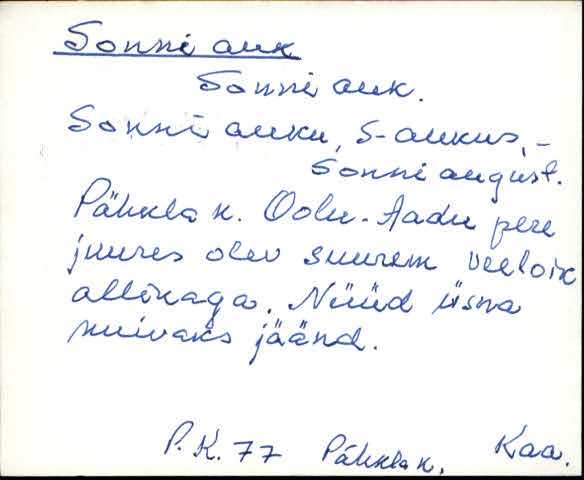 Sonni auk
Sonni auk.
Sonni auku, S-aukus, -
Sonni august.
Pähkla k. Oolu-Aadu pere
juures olev suurem veeloik
allikaga. Nüüd üsna
kuivaks jäänd.
P. K. 77 Pähkla k. Kaa.